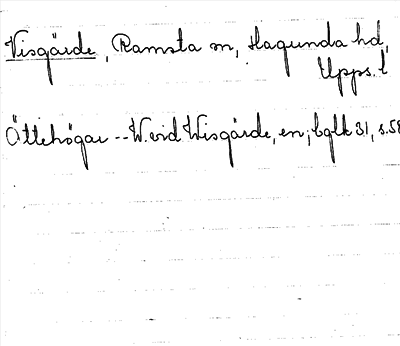 Visgärde, Ramsta sn, Hagunda hd,
Upps. l
Ättehögar -- W. vid Wisgärde, en; bglk 31, s.58